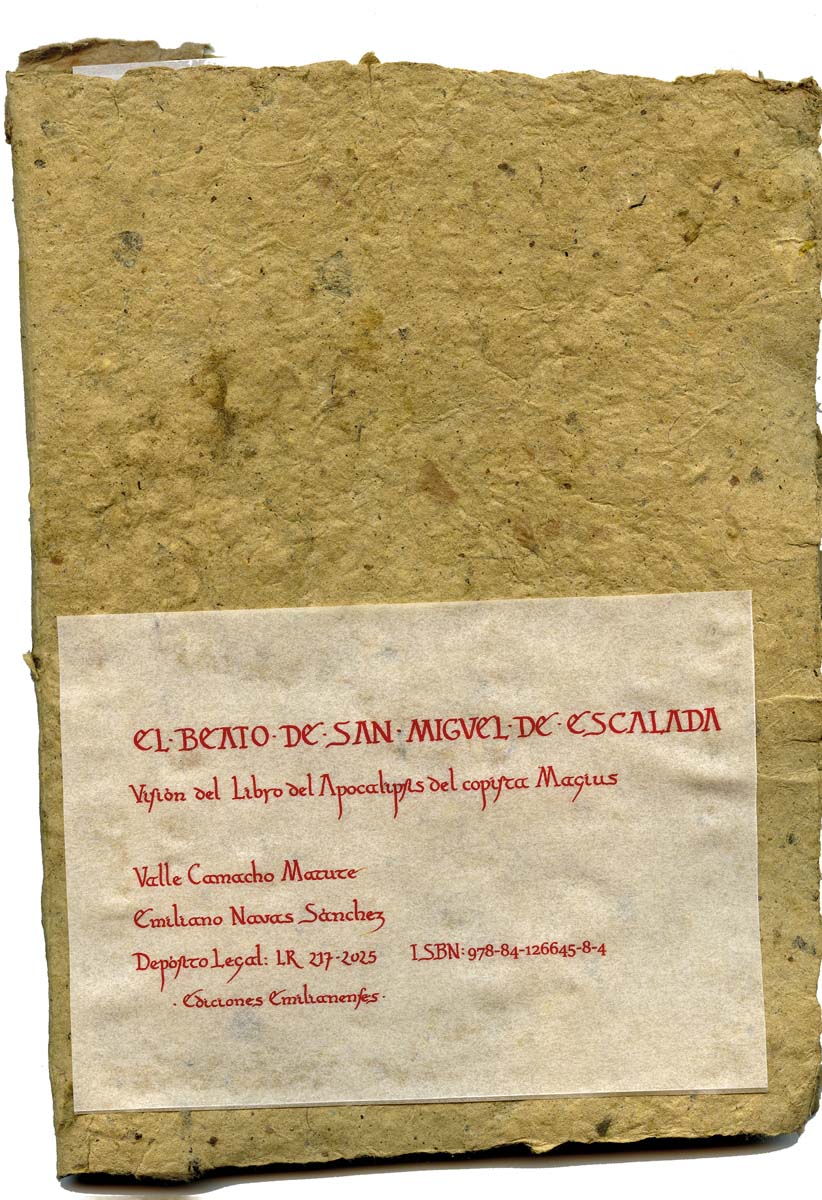 EL·BEATO·DE·SAN·MIGVEL·DE·ESCALADA
Visiòn del Libro del Apocalipsis del copista Magius
Valle Camacho Matute
Emiliano Navas Sànchez
Depòsito Legal: LR 217-2025 ISBN: 978-84-126645-8-4
· Ediciones Emilianenses ·